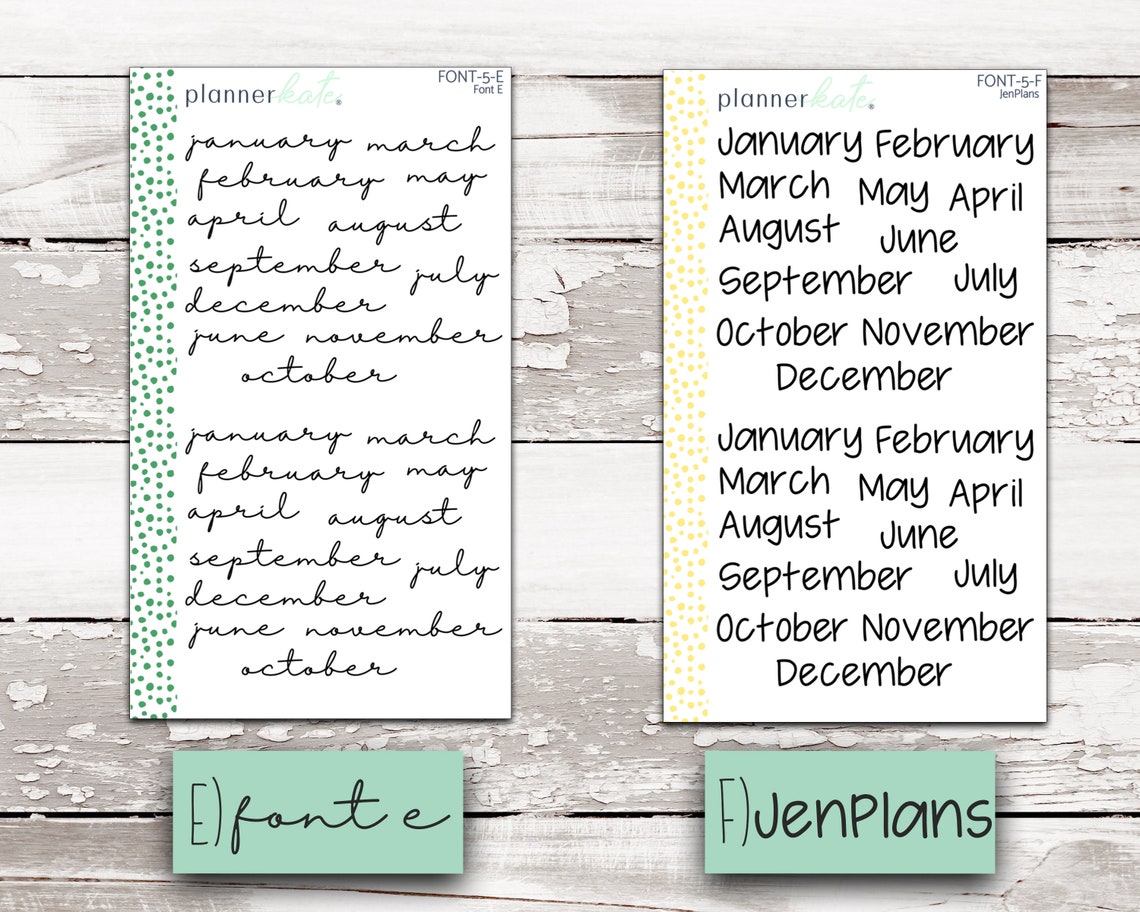 plannerkate®
FONT-5-E
Font E
january march
february may
april august
september july
december
june november
october
january march
february may
april august
september july
december
june november
october
E) font e
plannerkate®
FONT-5-F
JenPlans
January February
March May April
August June
September July
October November
December
January February
March May April
August June
September July
October November
December
F) JenPlans